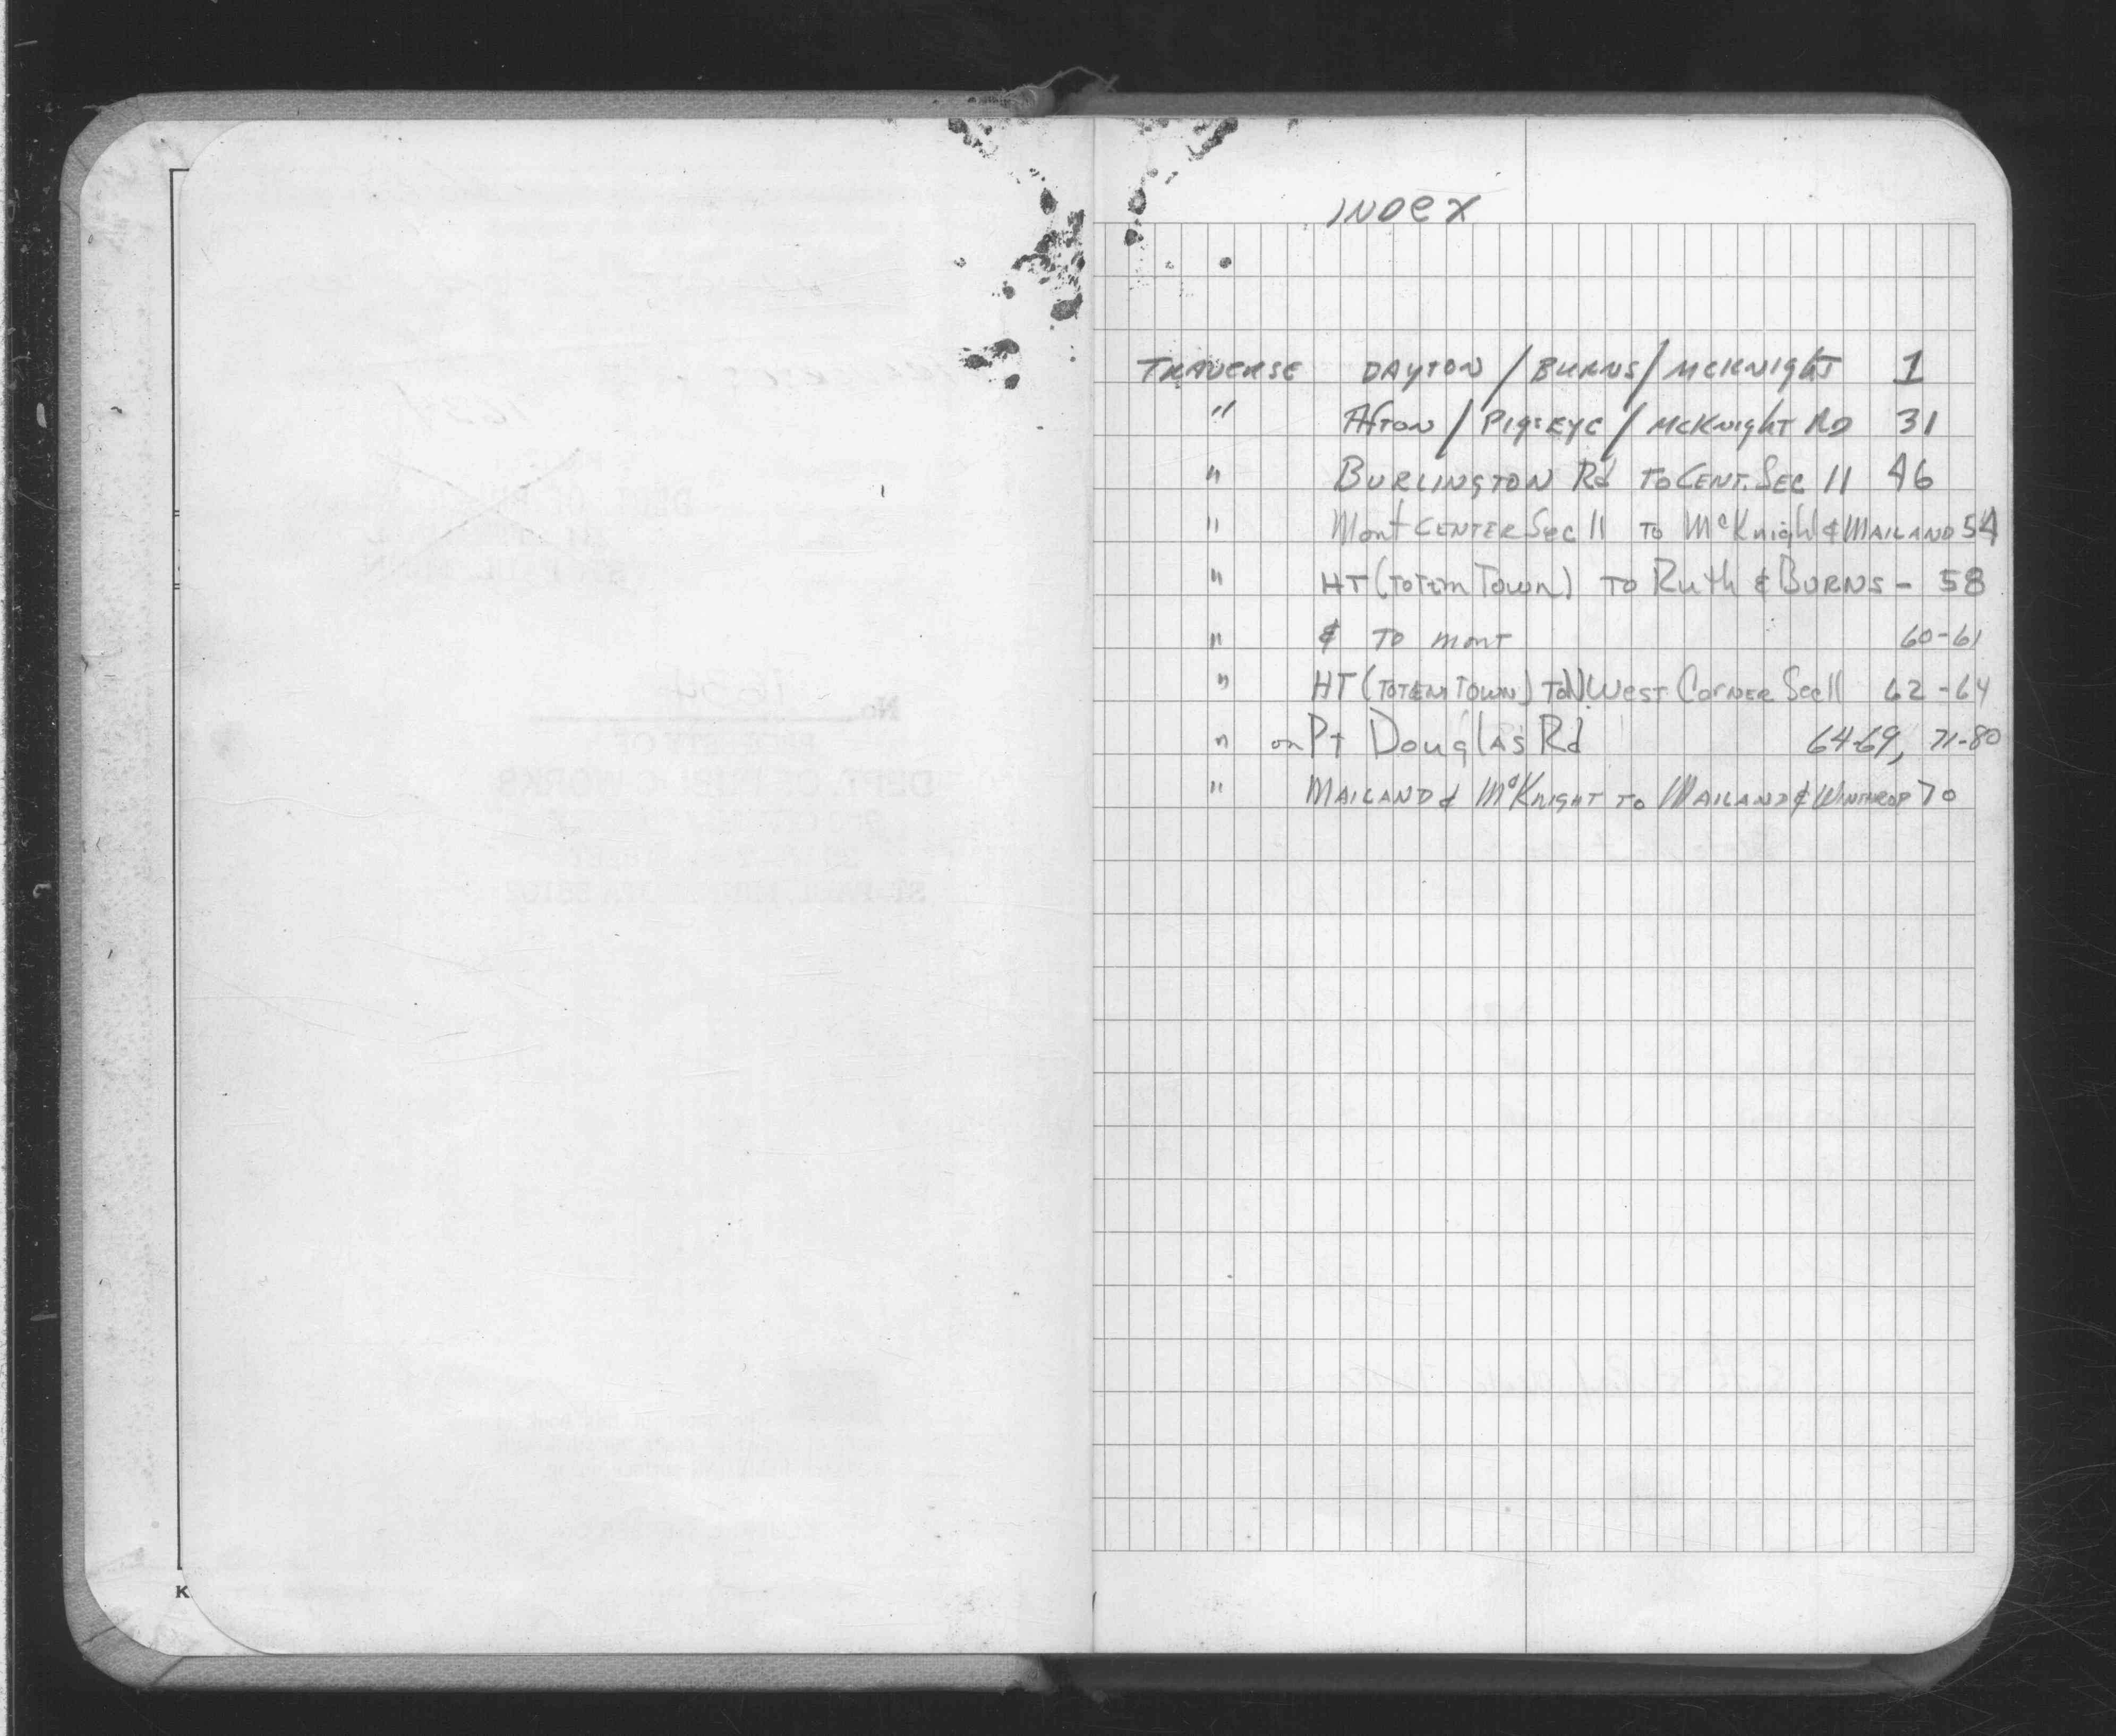 INDEX
TRAVERSE DAYTON / BURNS / McKNIGHT 1
" AFTON / PIGSEYE / McKNIGHT RD 31
" BURLINGTON Rd TO CENT. SEC 11 46
" Mont CENTER Sec 11 TO McKnight & MAILAND 54
" HT (TOTEM TOWN) TO Ruth & BURNS - 58
" & TO MONT 60-61
" HT (TOTEM TOWN) TO N West Corner Sec 11 62-64
" on Pt Douglas Rd 64-69, 71-80
" MAILAND & McKNIGHT TO MAILAND & WINTHROP 70
No. 1634
PROPERTY OF
DEPT. OF PUBLIC WORKS
ST. PAUL, MINNESOTA 55102
K